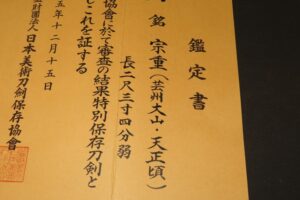 鑑定書
銘 宗重(芸州大山・天正頃)
長二尺三寸四分弱
協會に於て審査の結果特別保存刀剣と
しこれを証する
五年十二月十五日
財団法人日本美術刀劍保存協會